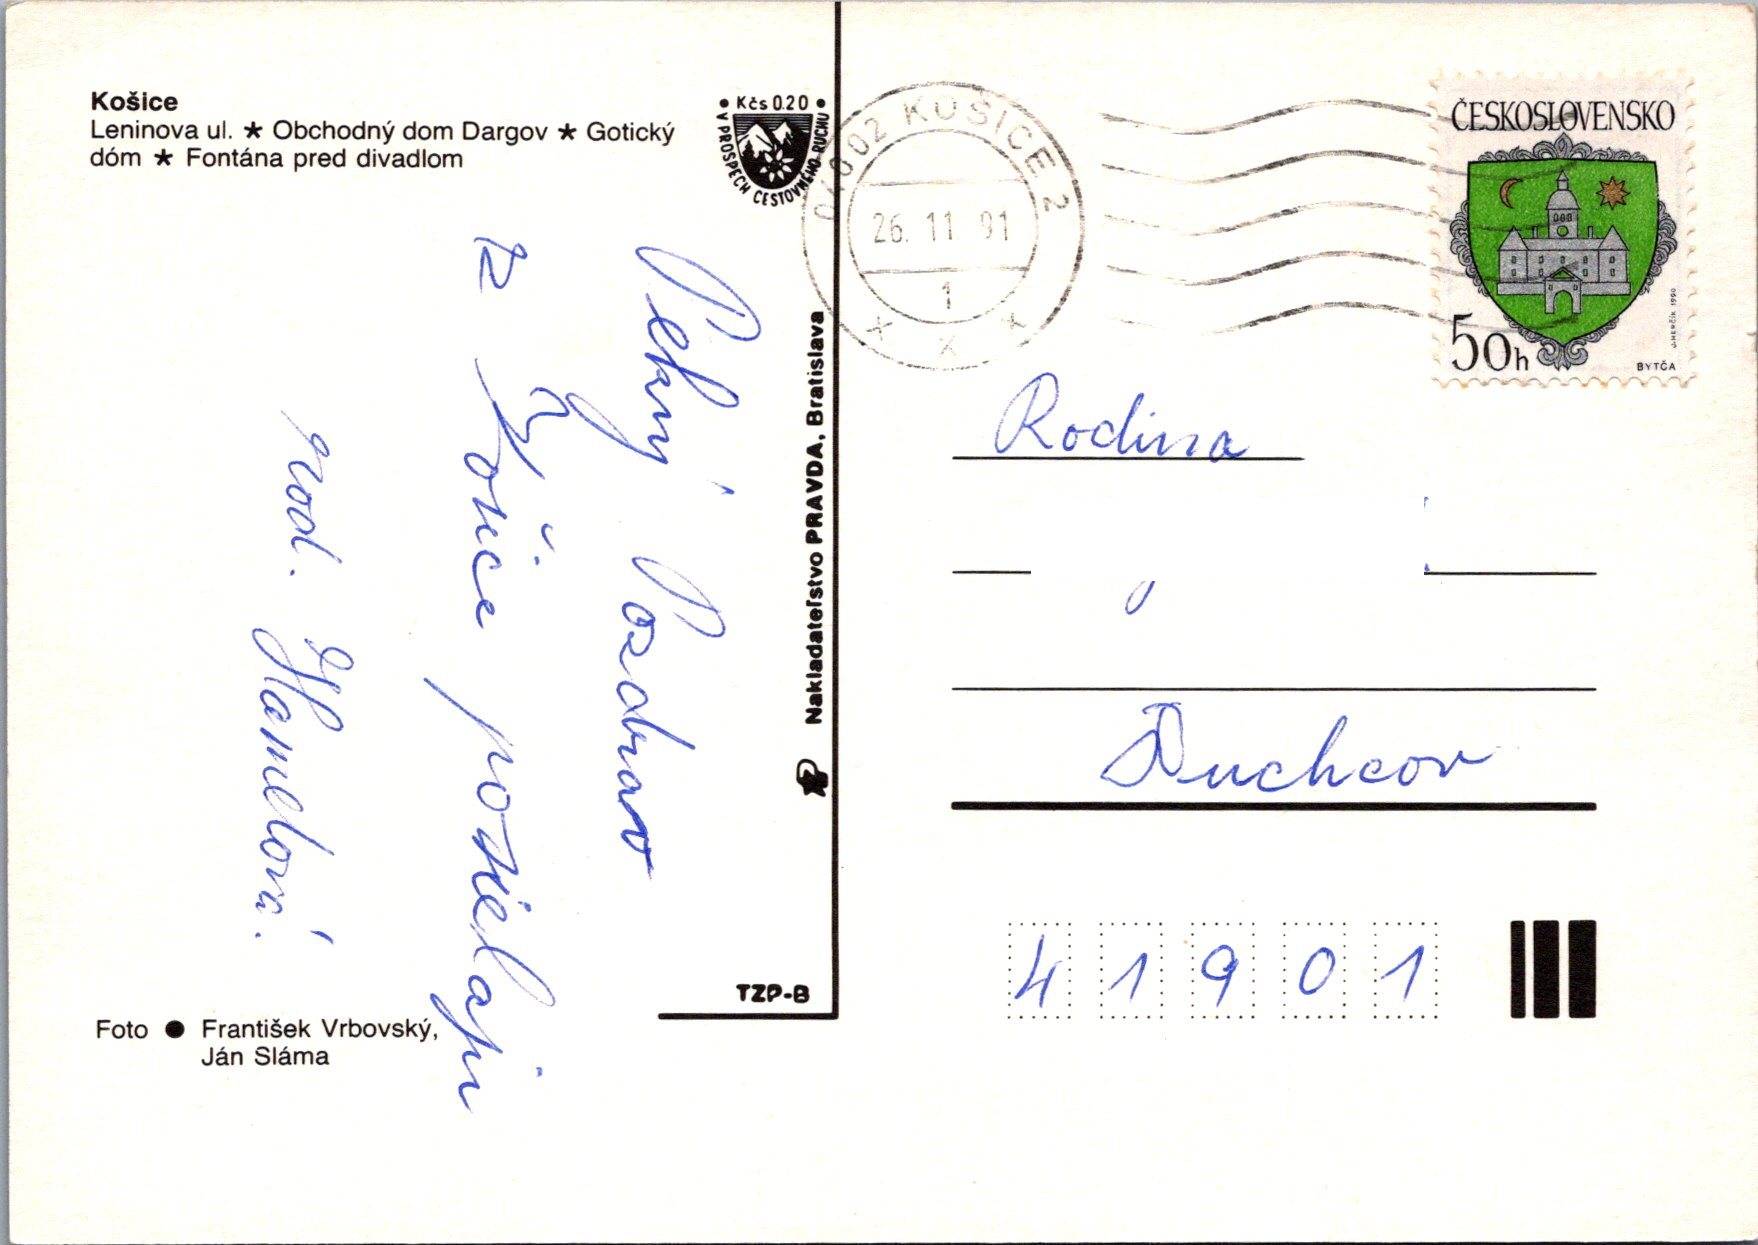 Košice
Leninova ul. ★ Obchodný dom Dargov ★ Gotický
dóm ★ Fontána pred divadlom
• Kčs 0.20 •
V PROSPECH CESTOVNÉHO RUCHU
040 02 KOŠICE 2
26. 11 91
1
ČESKOSLOVENSKO
50h
BYTČA
J. HERČÍK 1990
Pekný Pozdrav
z Košice posielajú
rod. Hamelová.
Nakladateľstvo PRAVDA, Bratislava
TZP-B
Foto ● František Vrbovský,
Ján Sláma
Rodina
Duchcov
41901